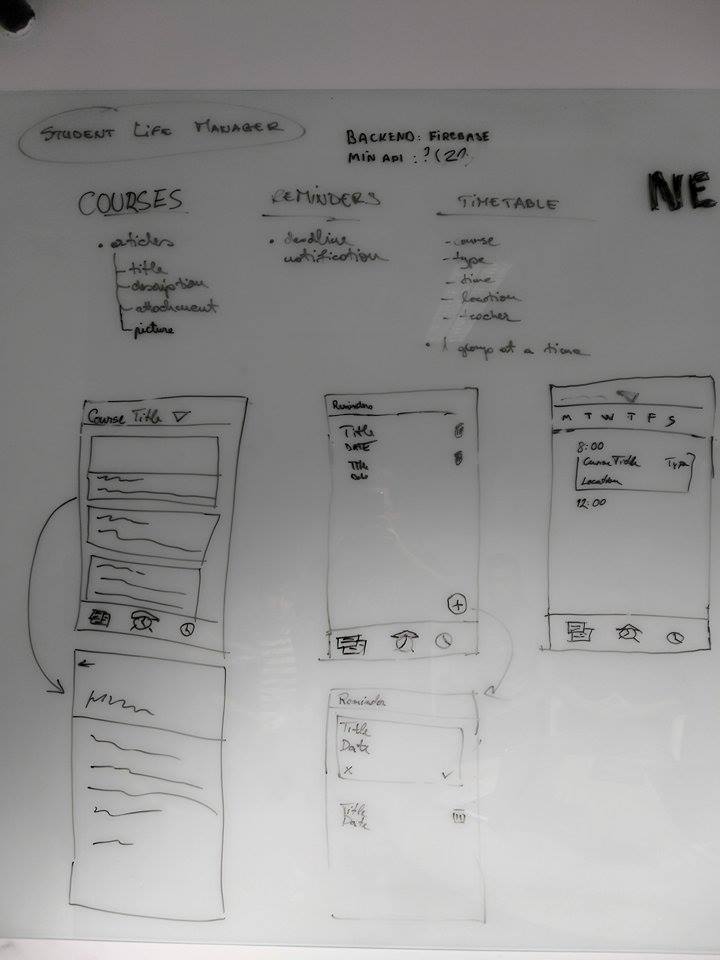 STUDENT LIFE MANAGER
BACKEND: FIREBASE
MIN API : ? (21)
NE
COURSES
• articles
title
description
attachment
picture
REMINDERS
• deadline
notification
TIMETABLE
- course
- type
- time
- location
- teacher
• 1 group at a time
Course Title
Reminders
Title
DATE
Title
Date
+
M T W T F S
8:00
Course Title Type
Location
12:00
Reminder
Title
Date
x ✓
Title
Date